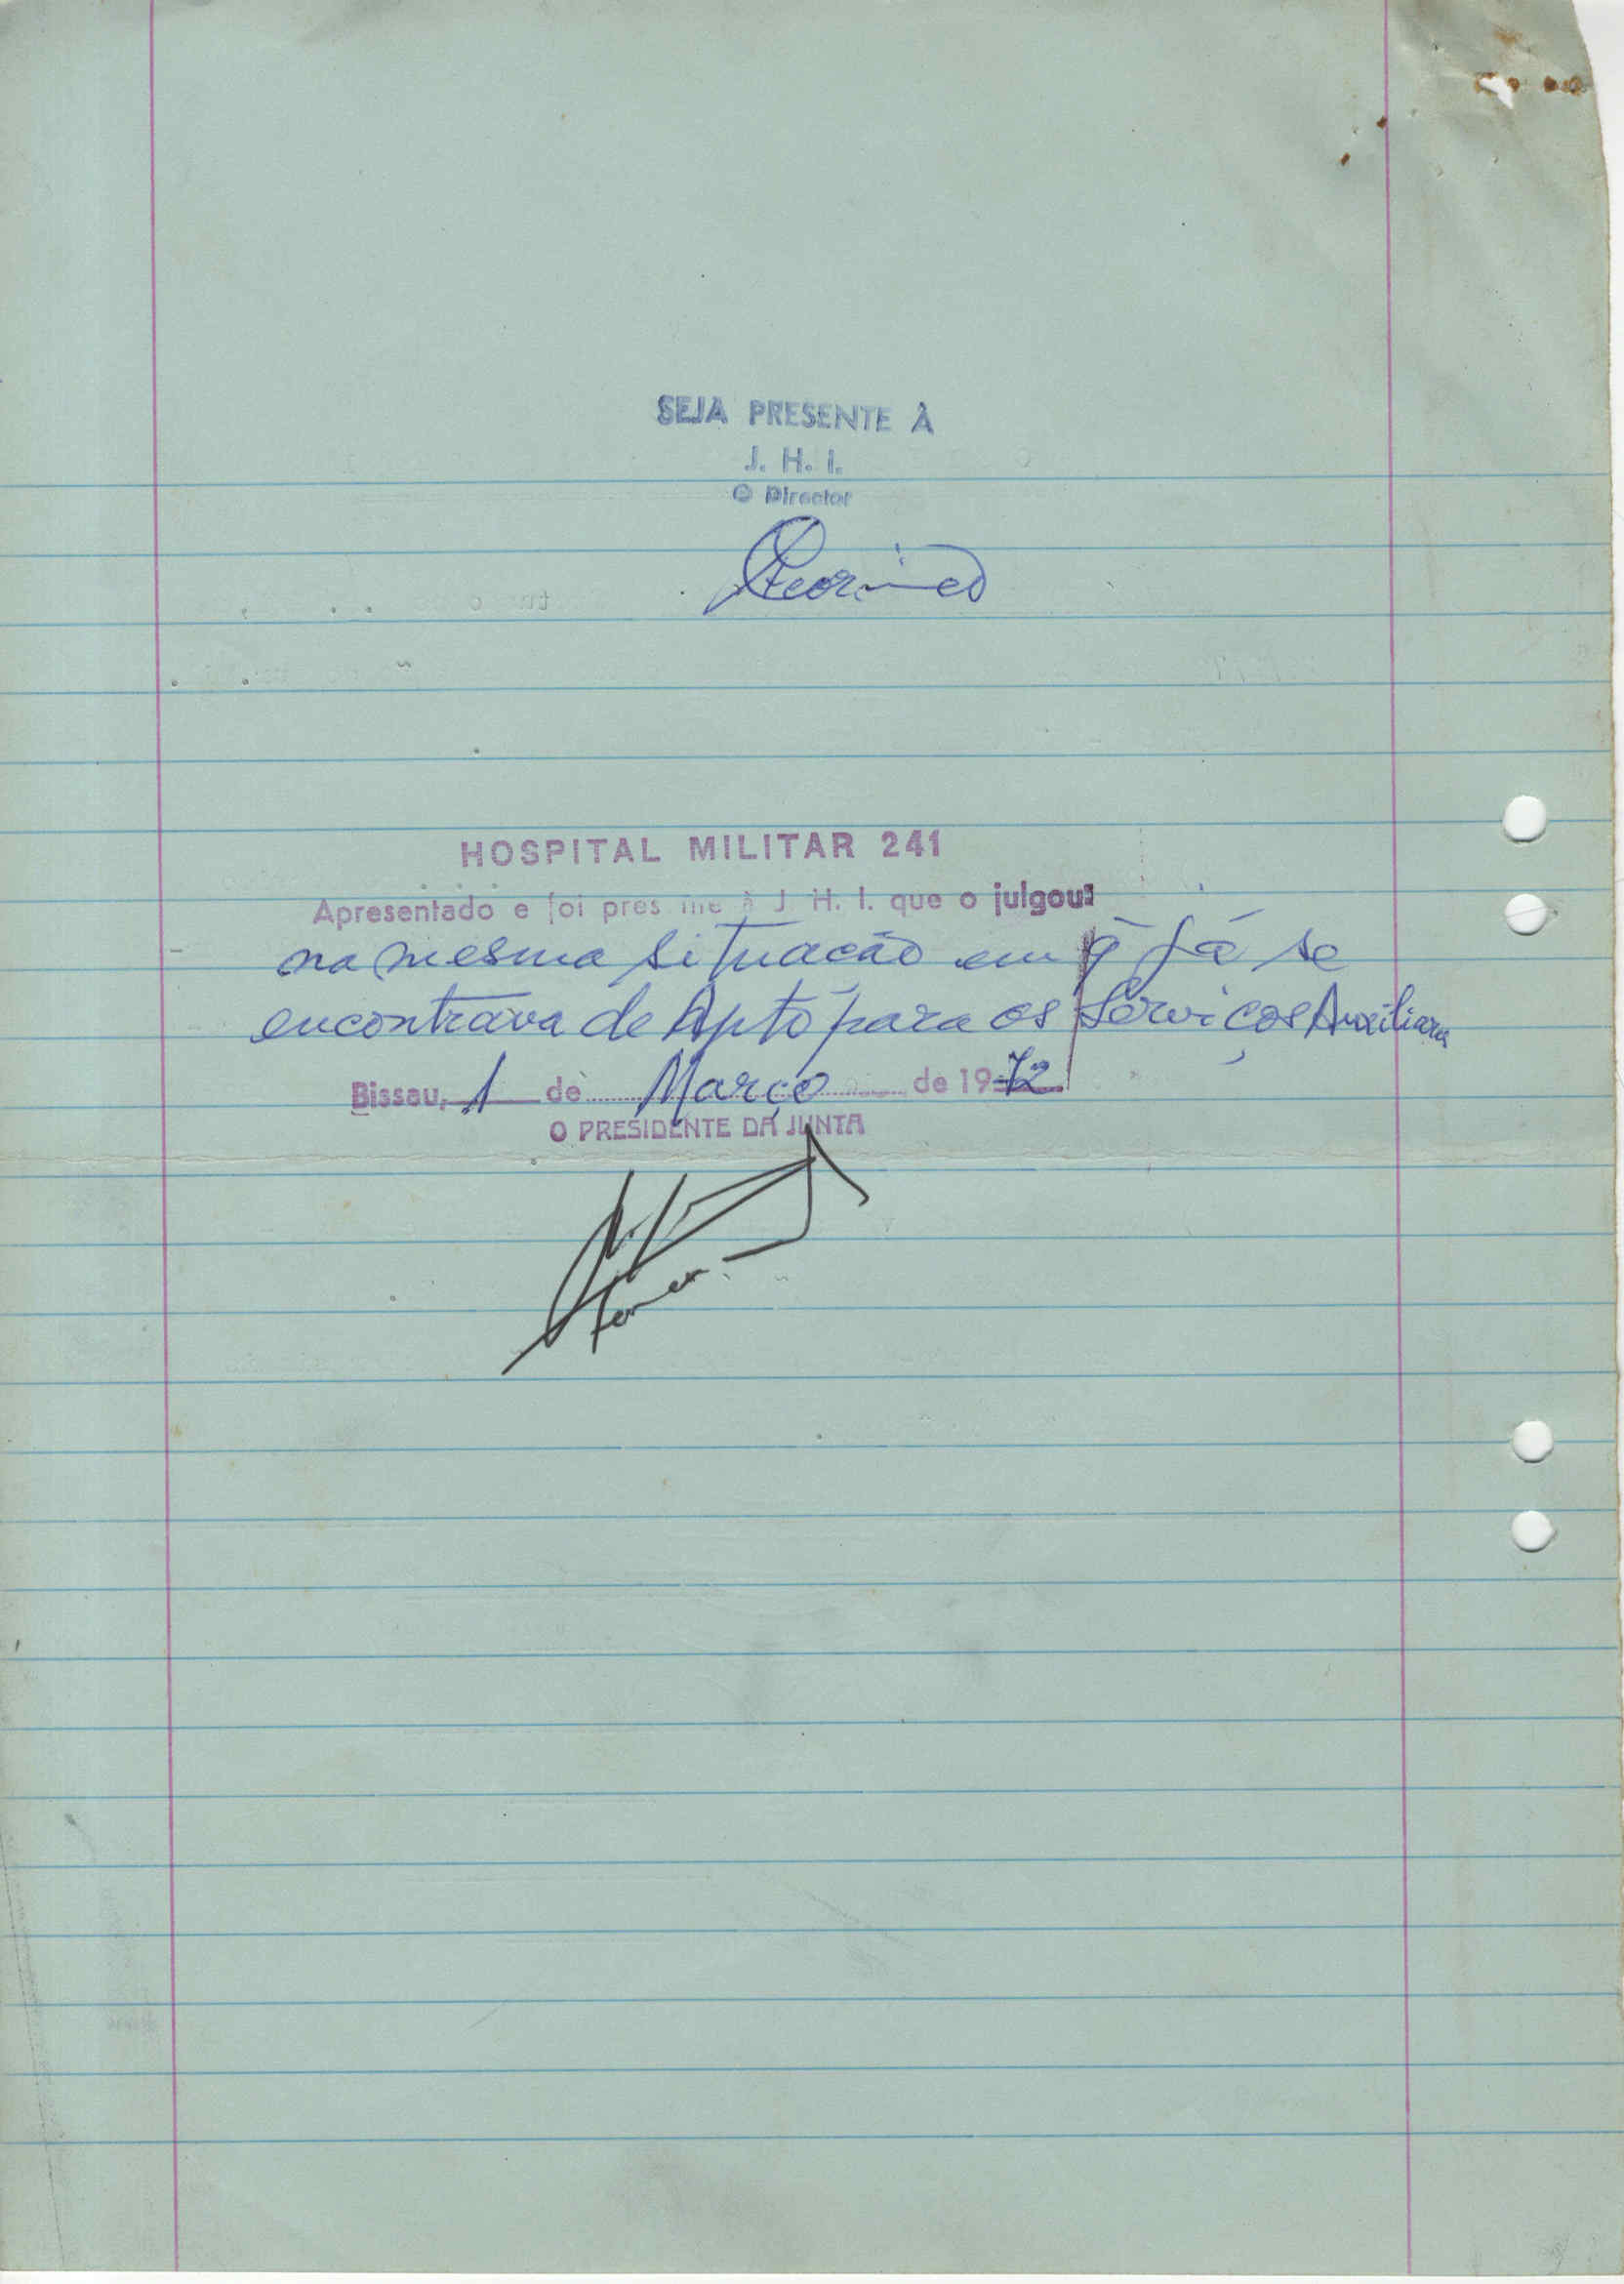 SEJA PRESENTE À
J. H. I.
O Director
HOSPITAL MILITAR 241
Apresentado e foi presente à J. H. I. que o julgou:
na mesma situação em q̃ já se
encontrava de Apto para os Serviços Auxiliares
Bissau, 1 de Março de 1972
O PRESIDENTE DA JUNTA